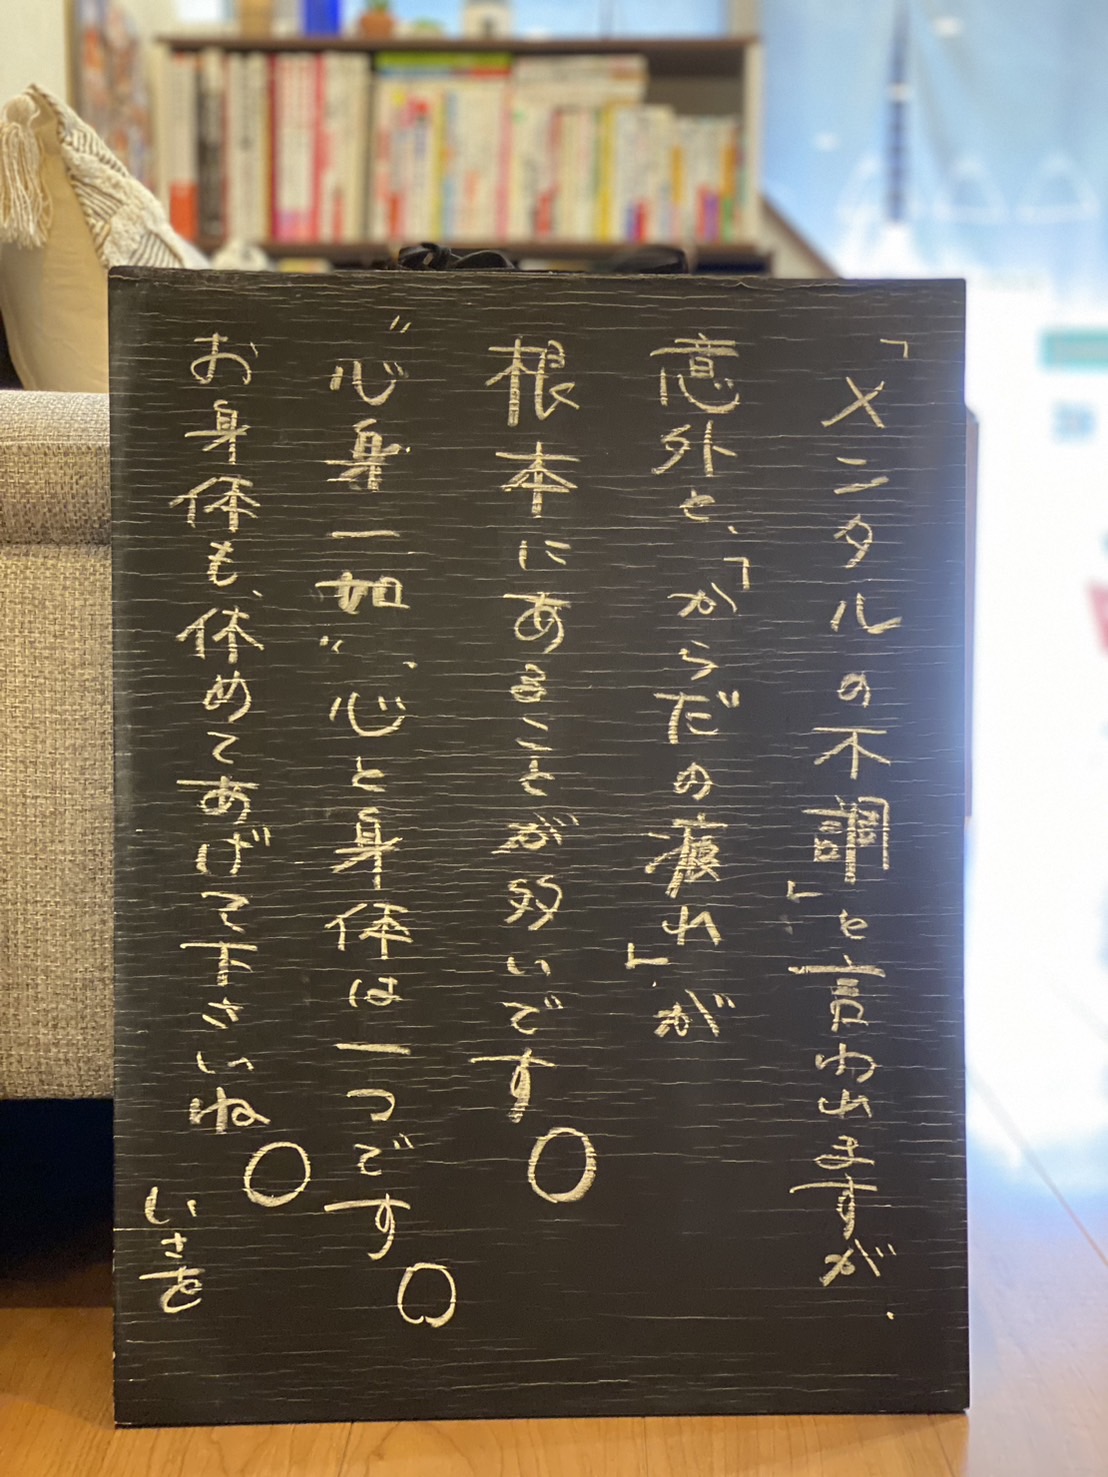 「メンタルの不調」と言われますが、
意外と、「からだの疲れ」が
根本にあることが多いです。
"心身一如"、心と身体は一つです。
お身体も、休めてあげて下さいね。
いさを